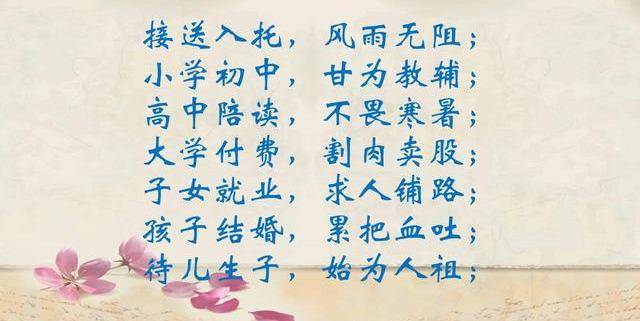 接送入托，风雨无阻；
小学初中，甘为教辅；
高中陪读，不畏寒暑；
大学付费，割肉卖股；
子女就业，求人铺路；
孩子结婚，累把血吐；
待儿生子，始为人祖；